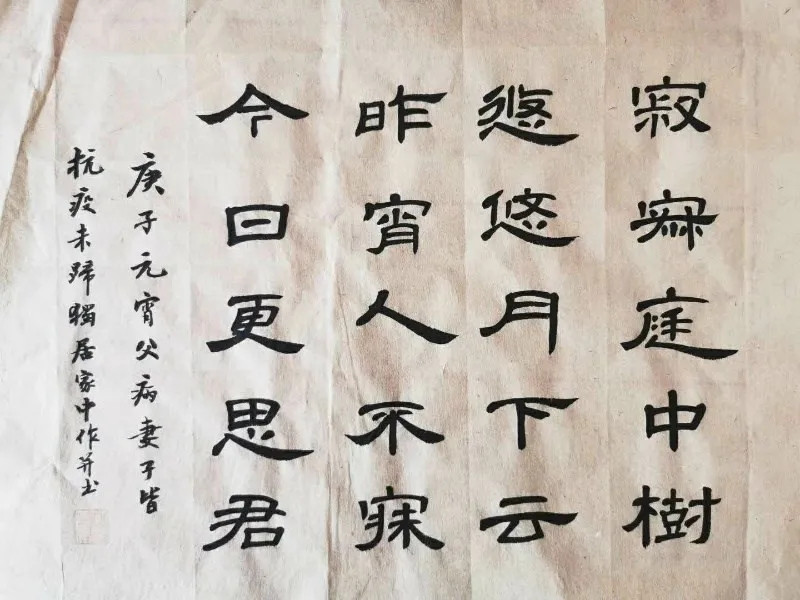 寂寞庭中樹
悠悠月下云
昨宵人不寐
今日更思君
庚子元宵父病妻子皆
抗疫未歸獨居家中作并书